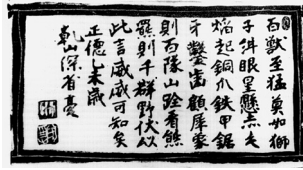 百獸至猛莫如獅
子斜眼星懸赤尾
焰起銅爪鉄甲鋸
牙鑿齒顧犀象
則百隊山登看熊
羆則千群野伏以
此言威威可知矣
正德乙未歳
乾山深省毫